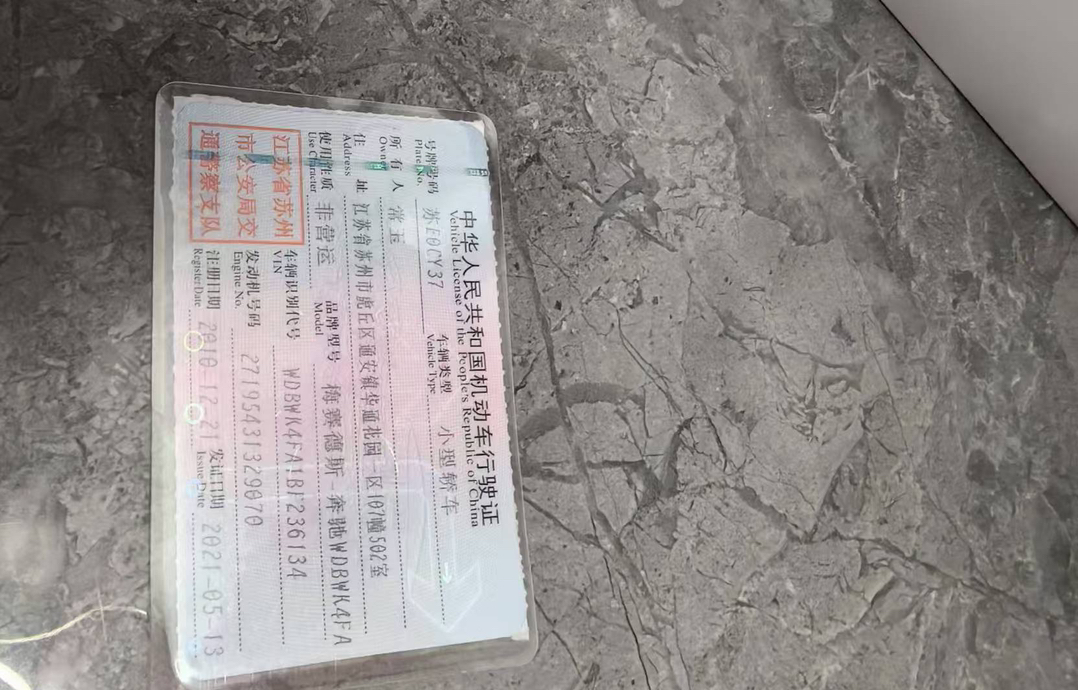 中华人民共和国机动车行驶证
Vehicle License of the People's Republic of China
号牌号码 苏E0CY37 车辆类型 小型轿车
Plate No. Vehicle Type
所有人 常玉
Owner
住址 江苏省苏州市虎丘区通安镇华通花园一区107幢502室
Address
使用性质 非营运 品牌型号 梅赛德斯-奔驰WDBWK4FA
Use Character Model
江苏省苏州
市公安局交
通警察支队
车辆识别代号 WDBWK4FA1BF236134
VIN
发动机号码 27195431329070
Engine No.
注册日期 2010-12-21 发证日期 2021-05-13
Register Date Issue Date